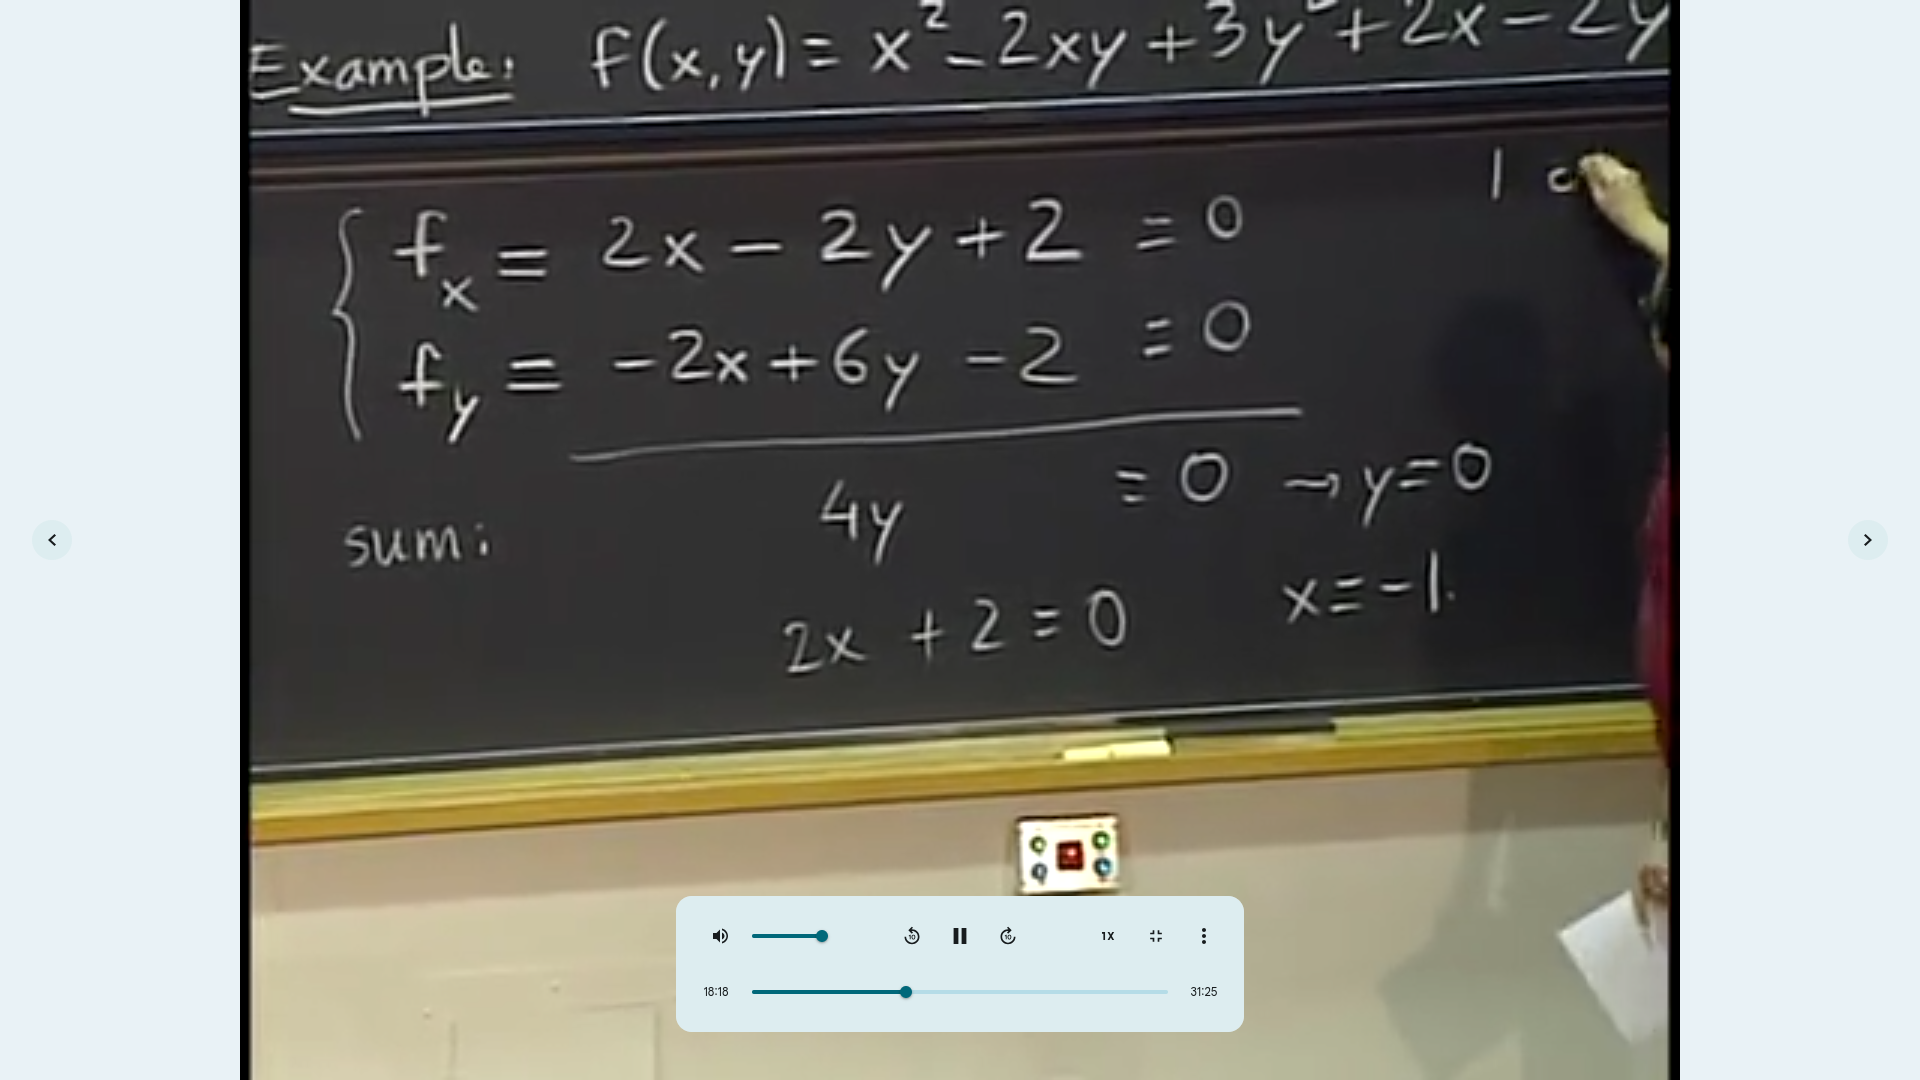 Example: f(x,y) = x² - 2xy + 3y² + 2x - 2y
1 c
f_x = 2x - 2y + 2 = 0
f_y = -2x + 6y - 2 = 0
sum: 4y = 0 → y = 0
2x + 2 = 0 x = -1.
10 10 1X
18:18 31:25